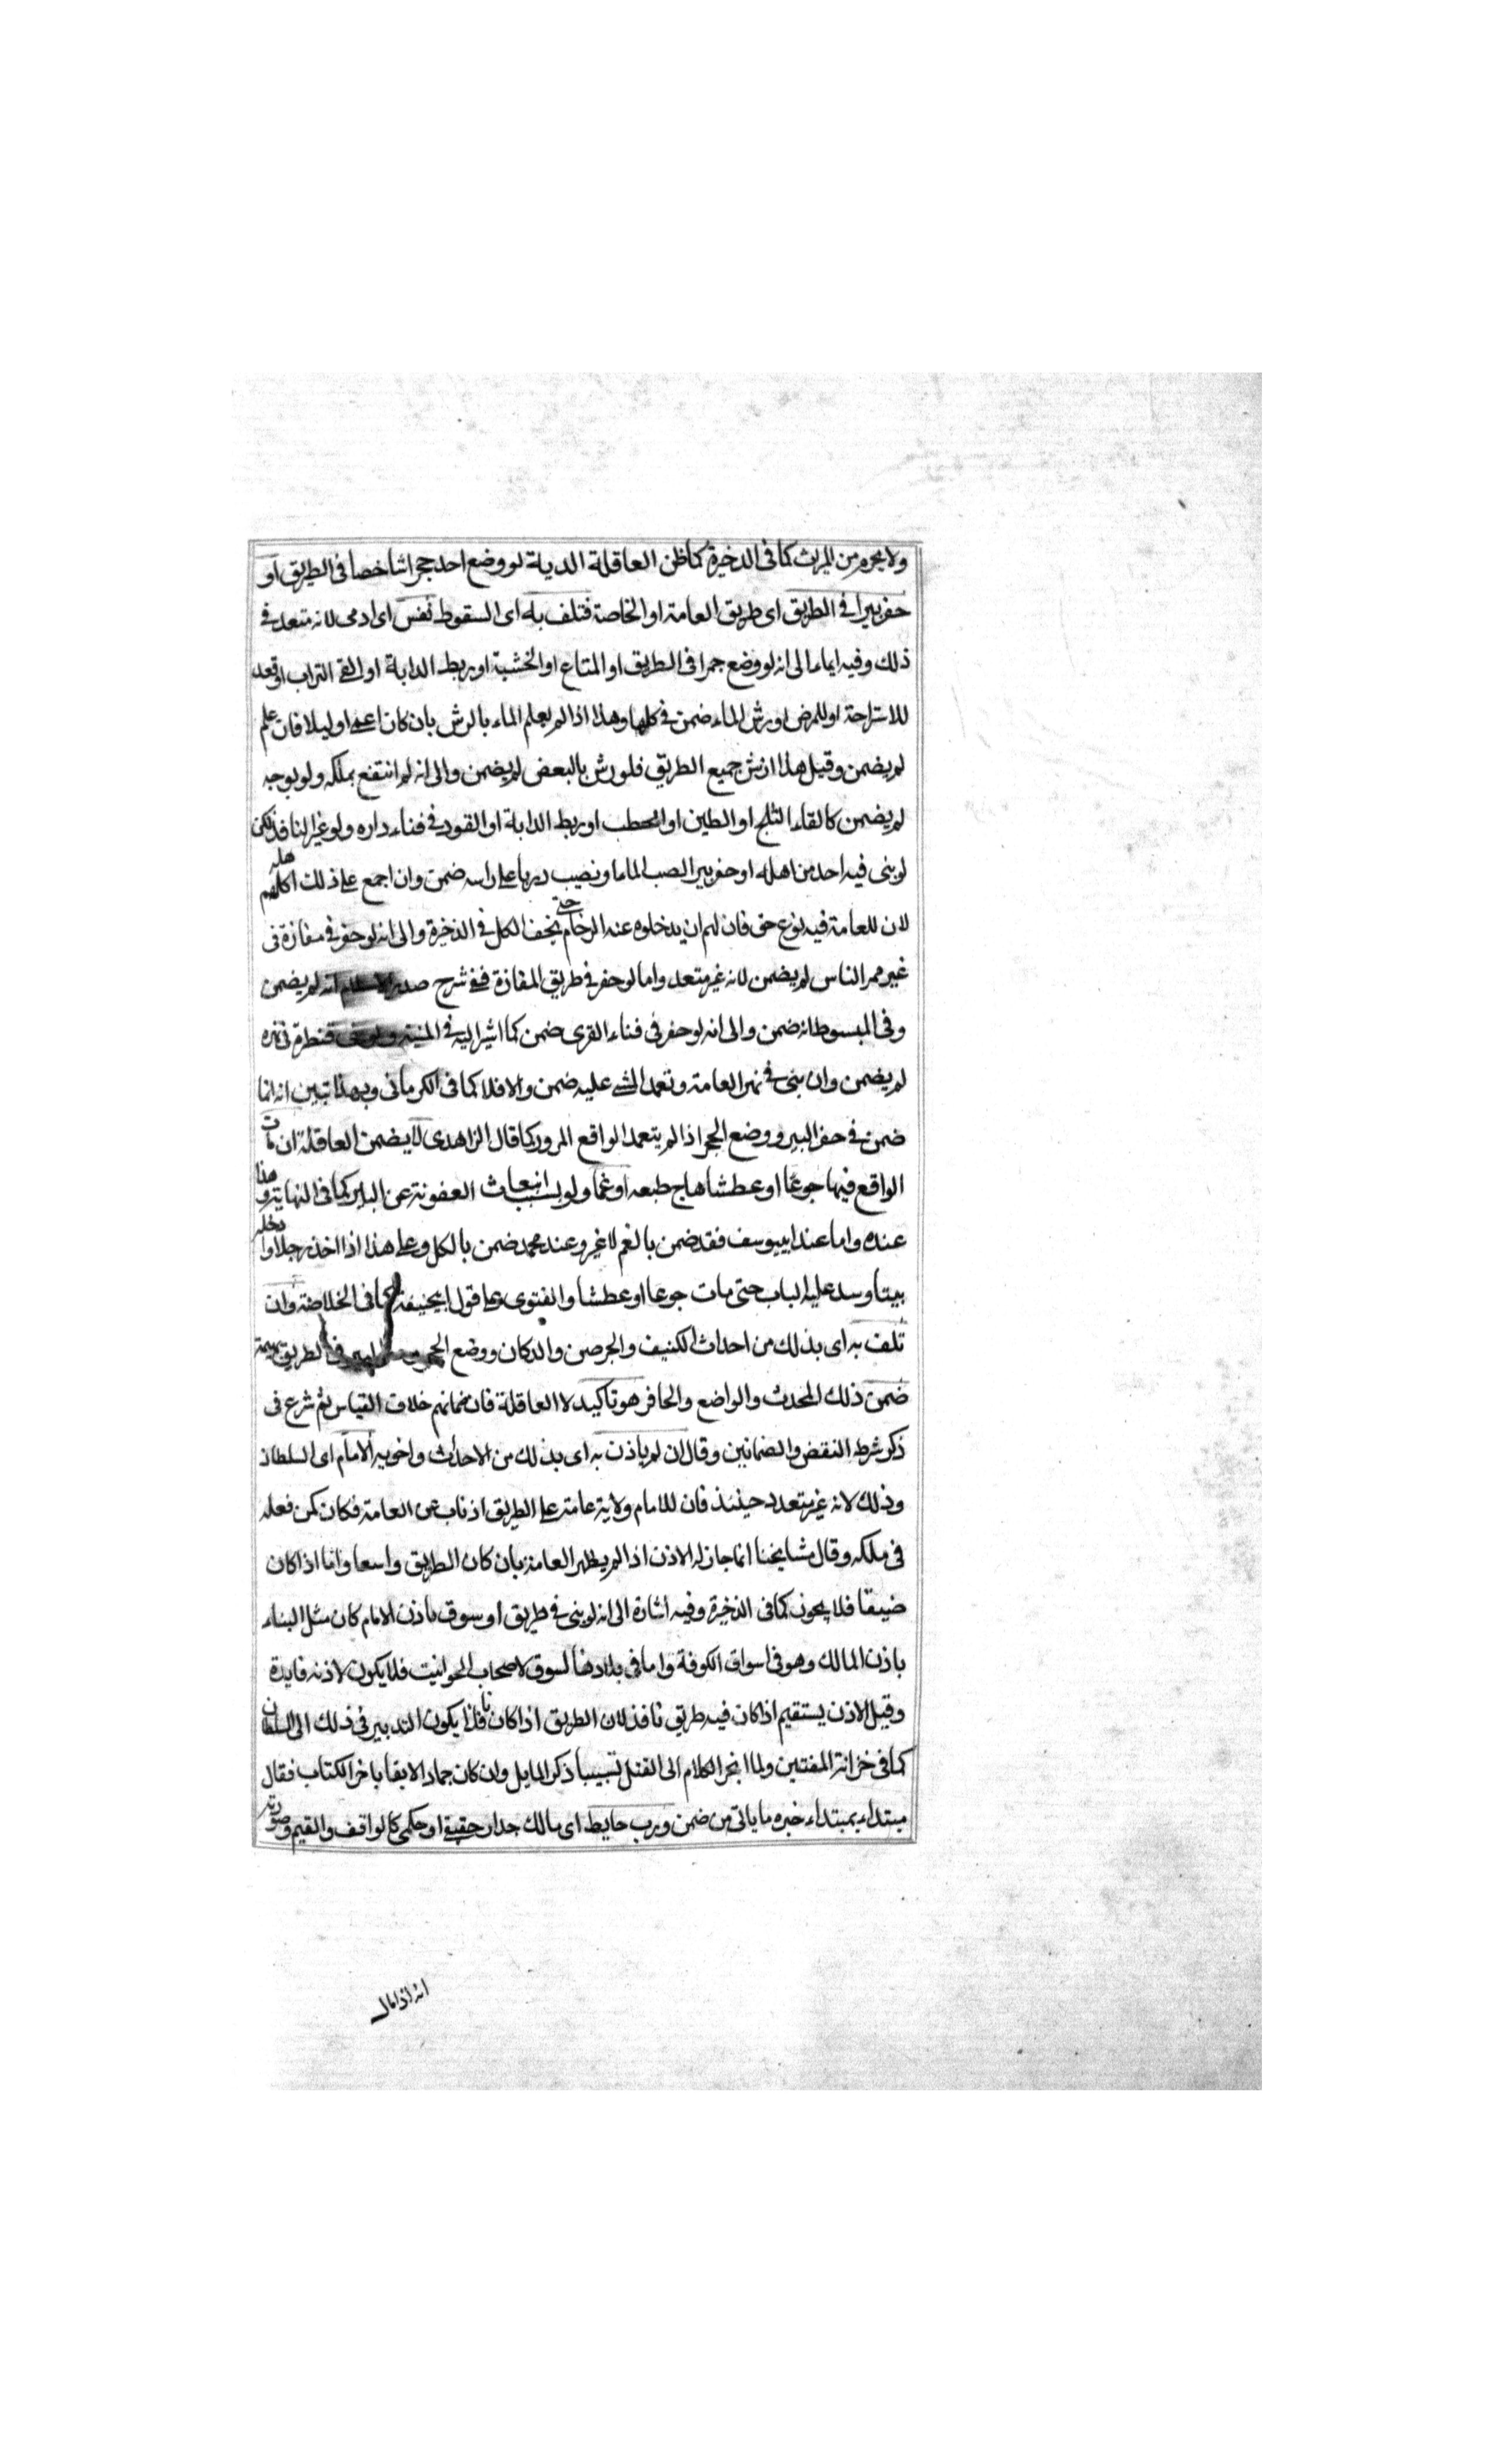 ولا يحرم من الميراث كما فى الدخيرة كما ظن العاقلة الدية لو وضع احد حجرا شاخصا فى الطريق او
حفر بيرا فى الطريق اى طريق العامة او الخاصة فتلف به اى السقوط نفس اى ادمى لانه متعد فى
ذلك وفيه ايماء الى انه لو وضع جمرا فى الطريق او المتاع او الخشبة او ربط الدابة او القى التراب او قعد
للاستراحة او للمرض او رش الماء ضمن فى كلها وهذا اذا لم يعلم الماء بالرش بان كان اعمى او ليلا فان علم
لم يضمن وقيل هذا ان رش جميع الطريق فلو رش بالبعض لم يضمن والى انه لو انتفع بملكه ولو بوجه
لم يضمن كالقاء الثلج او الطين او الحطب او ربط الدابة او القود فى فناء داره ولو غير النافذ لكن
لو بنى فيه احد من اهله او حفر بيرا لصب الماء او نصيب ضمن وان اجمع على ذلك اهله كلهم
لان للعامة فيه نوع حق فان لهم ان يدخلوه عند الزحام حتى يخف الكل فى الذخيرة والى انه لو حفر فى مفازة فى
غير ممر الناس لم يضمن لانه غير متعد واما لو حفر فى طريق المفازة ففى شرح صدر الاسلام انه لم يضمن
وفى المبسوط انه ضمن والى انه لو حفر فى فناء القرى ضمن كما اشير اليه فى المنية قنطرة فى نهره
لم يضمن وان بنى فى نهر العامة وتعمد المشى عليه ضمن والا فلا كما فى الكرمانى وبهذا تبين انه انما
ضمن فى حفر البير ووضع الحجر اذا لم يتعمد الواقع المرور كما قال الزاهدى لا يضمن العاقلة ان مات
الواقع فيها جوعا او عطشا هاج طبعه او غما ولو بسبب انبعاث العفونة عن البير كما فى النهاية وهذا
عنده واما عند ابى يوسف فقد ضمن بالغم لا غير وعند محمد ضمن بالكل وعلى هذا اذا اخذ رجلا وادخله
بيتا وسد عليه الباب حتى مات جوعا او عطشا والفتوى على قول ابى حنيفة كما فى الخلاصة وان
تلف به اى بذلك من احداث الكنيف والجرصن والدكان ووضع الحجر فى الطريق بهيمة
ضمن ذلك المحدث والواضع والحافر هو تاكيد لا العاقلة فان ضمانهم خلاف القياس ثم شرع فى
ذكر شرط النقض والضمانين وقال ان لم ياذن به اى بذلك من الاحداث واخويه الامام اى السلطان
وذلك لانه غير متعد حينئذ فان للامام ولاية عامة على الطريق اذ ناب عن العامة فكان كمن فعله
فى ملكه وقال مشايخنا انما جاز له الاذن اذا لم يضر العامة بان كان الطريق واسعا واما اذا كان
ضيقا فلا يجوز كما فى الذخيرة وفيه اشارة الى انه لو بنى فى طريق او سوق باذن الامام كان مثل البناء
باذن المالك وهو فى اسواق الكوفة واما فى بلادنا لسوق لاصحاب الحوانيت فلا يكون لاذنه فايدة
وقيل الاذن يستقيم اذا كان فيه طريق نافذ لان الطريق اذا كان نافذا يكون التدبير فى ذلك الى السلطان
كما فى خزانة المفتين ولما انجر الكلام الى القتل تسبيبا ذكر المايل وان كان جمادا لايقا باخر الكتاب فقال
مبتداء بمبتداء خبره ما ياتى من ضمن ورب حايط اى مالك جدار حقيقة او حكمى كالواقف والقيم وصورته
انه اذا مال